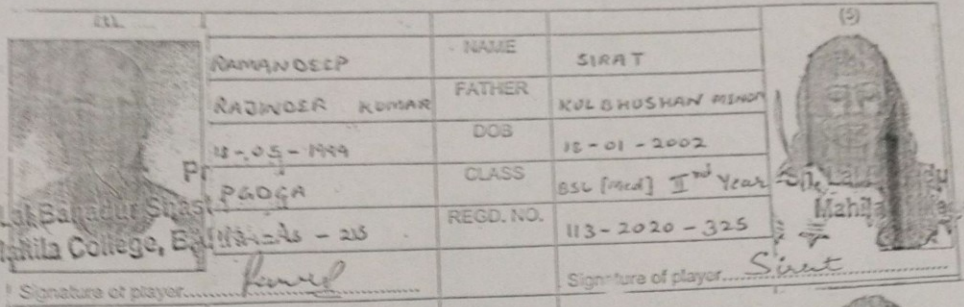 (5)
RAMANDEEP NAME SIRAT
RAJINDER KUMAR FATHER KULBHUSHAN MENON
18-05-1999 DOB 18-01-2002
PGDCA CLASS BSC [Med] IInd Year
REGD. NO. 113-2020-325
Lal Bahadur Shast
Mahila College, Ba
Mahila
Signature of player
Signature of player Sirat